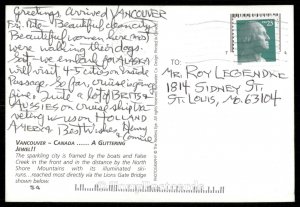 Greetings arrived VANCOUVER
Fri. Beautiful clean city
Beautiful women here most
were walking their dogs.
Sat. we embark for ALASKA
will visit 4-5 towns inside
Passage. So far cruise going
fine. Quite a lot of BRITISH
AUSSIES on cruise ship tra-
veling with us on HOLLAND
AMERICA Best Wishes, Henry
Connie
VANCOUVER – CANADA ...... A GLITTERING
JEWEL!!
The sparkling city is framed by the boats and False
Creek in the front and in the distance by the North
Shore Mountains with its illuminated ski-
runs...reached most directly via the Lions Gate Bridge
shown below.
TO:
MR. ROY LEGENDRE
1814 SIDNEY ST.
ST. LOUIS, Mo. 63104